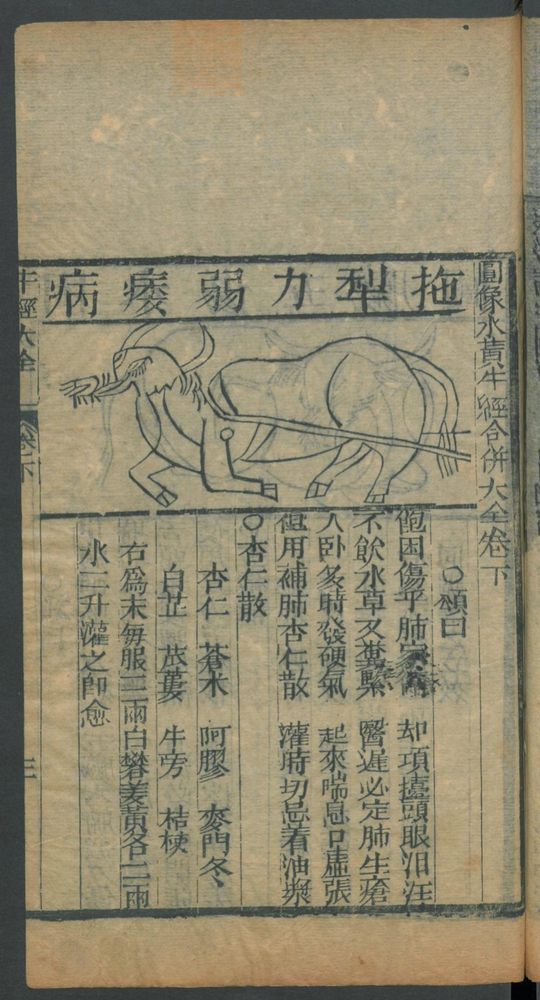 圓像水黃牛經合併大全卷下
拖犁力弱痿病
○頌曰
飽困傷乎肺 却項擡頭眼泪汪
不飲水草又糞緊 醫遲必定肺生瘡
久卧多時發硬氣 起來喘息口虛張
但用補肺杏仁散 灌時切忌着油漿
○杏仁散
杏仁 蒼木 阿膠 麥門冬
白芷 苽蔞 牛旁 桔梗
右爲末每服三兩白礬姜黃各二兩
水二升灌之即愈
牛經大全 卷下 三